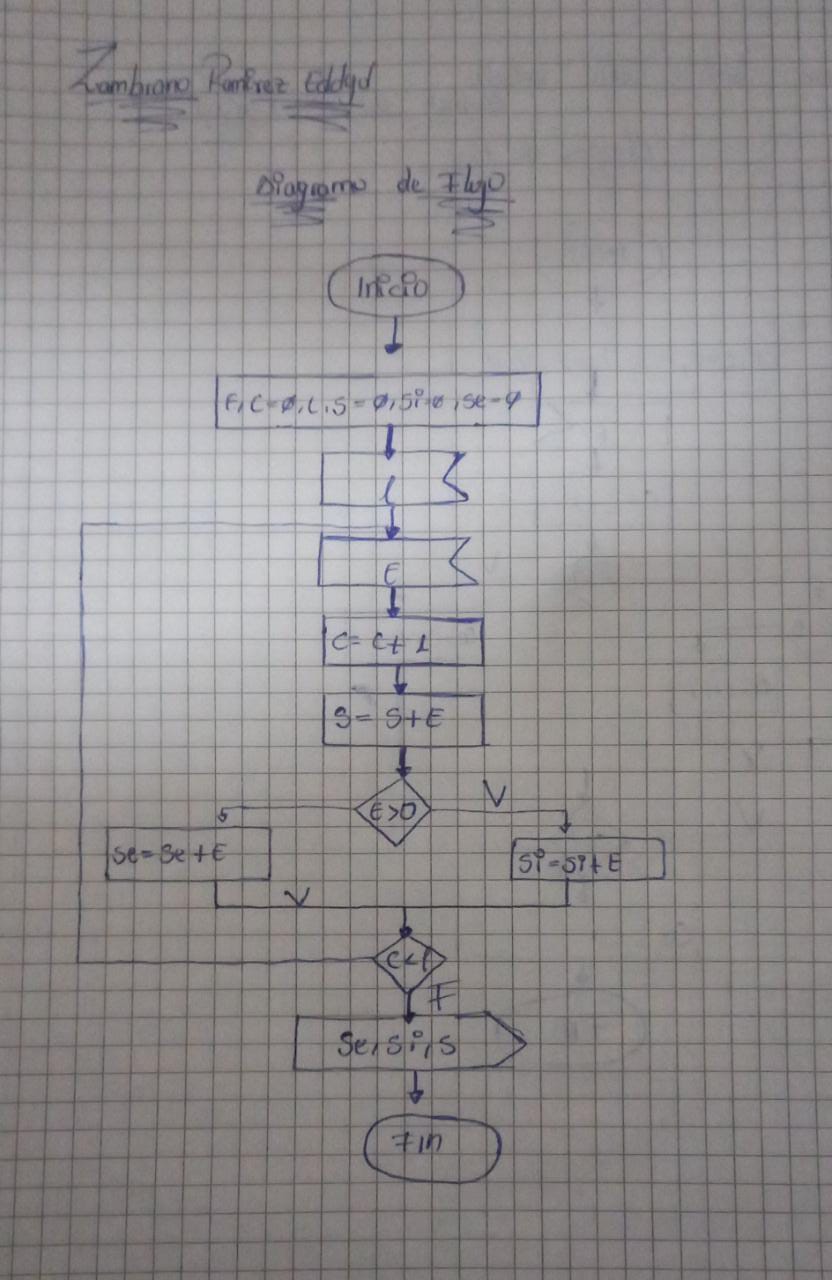 Zambrano Ramirez Eddyd
Diagrama de Flujo
Inicio
E, C=0, L, S=0, Si=0, Se=0
L
E
C= C+1
S= S+E
E>0
V
Se=Se+E
Si=Si+E
V
C<L
F
Se, Si, S
Fin